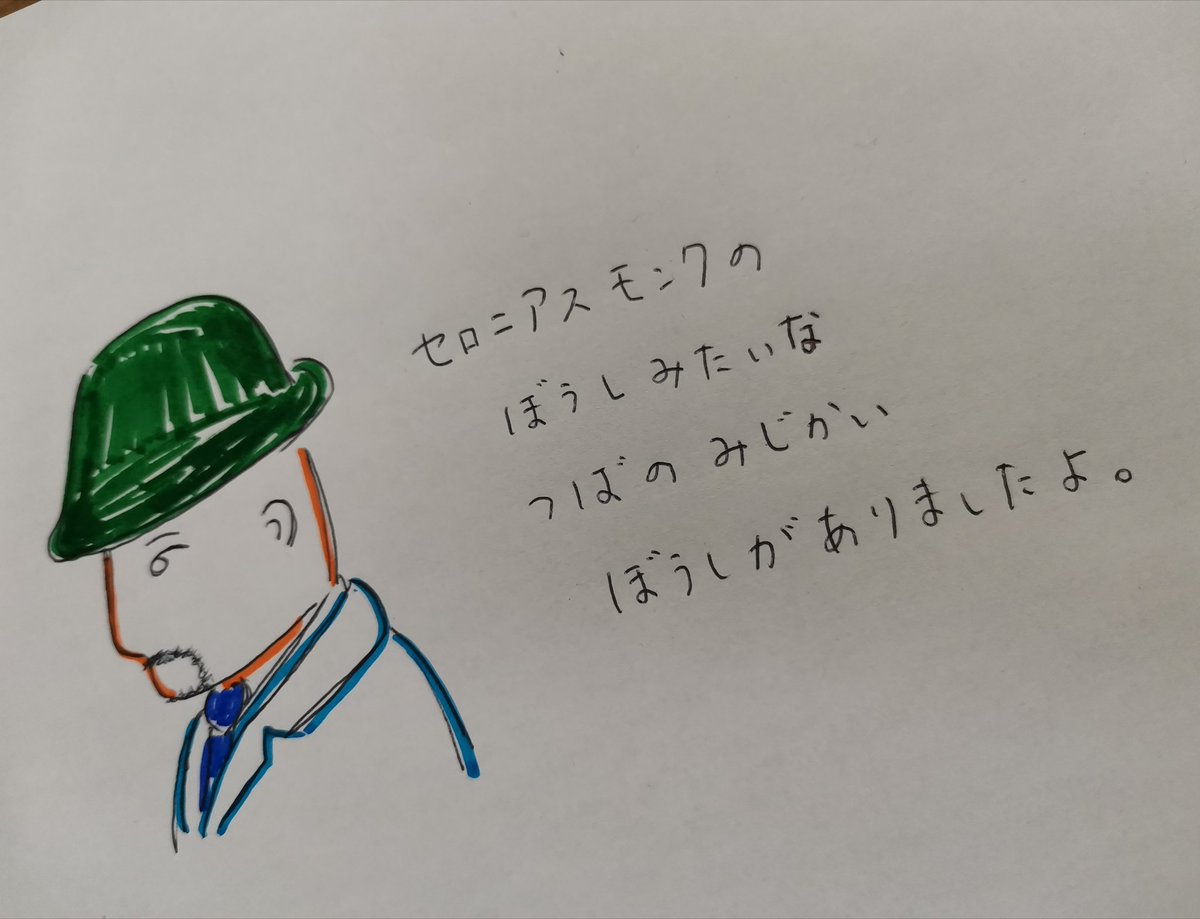 セロニアスモンクの
ぼうしみたいな
つばのみじかい
ぼうしがありましたよ。